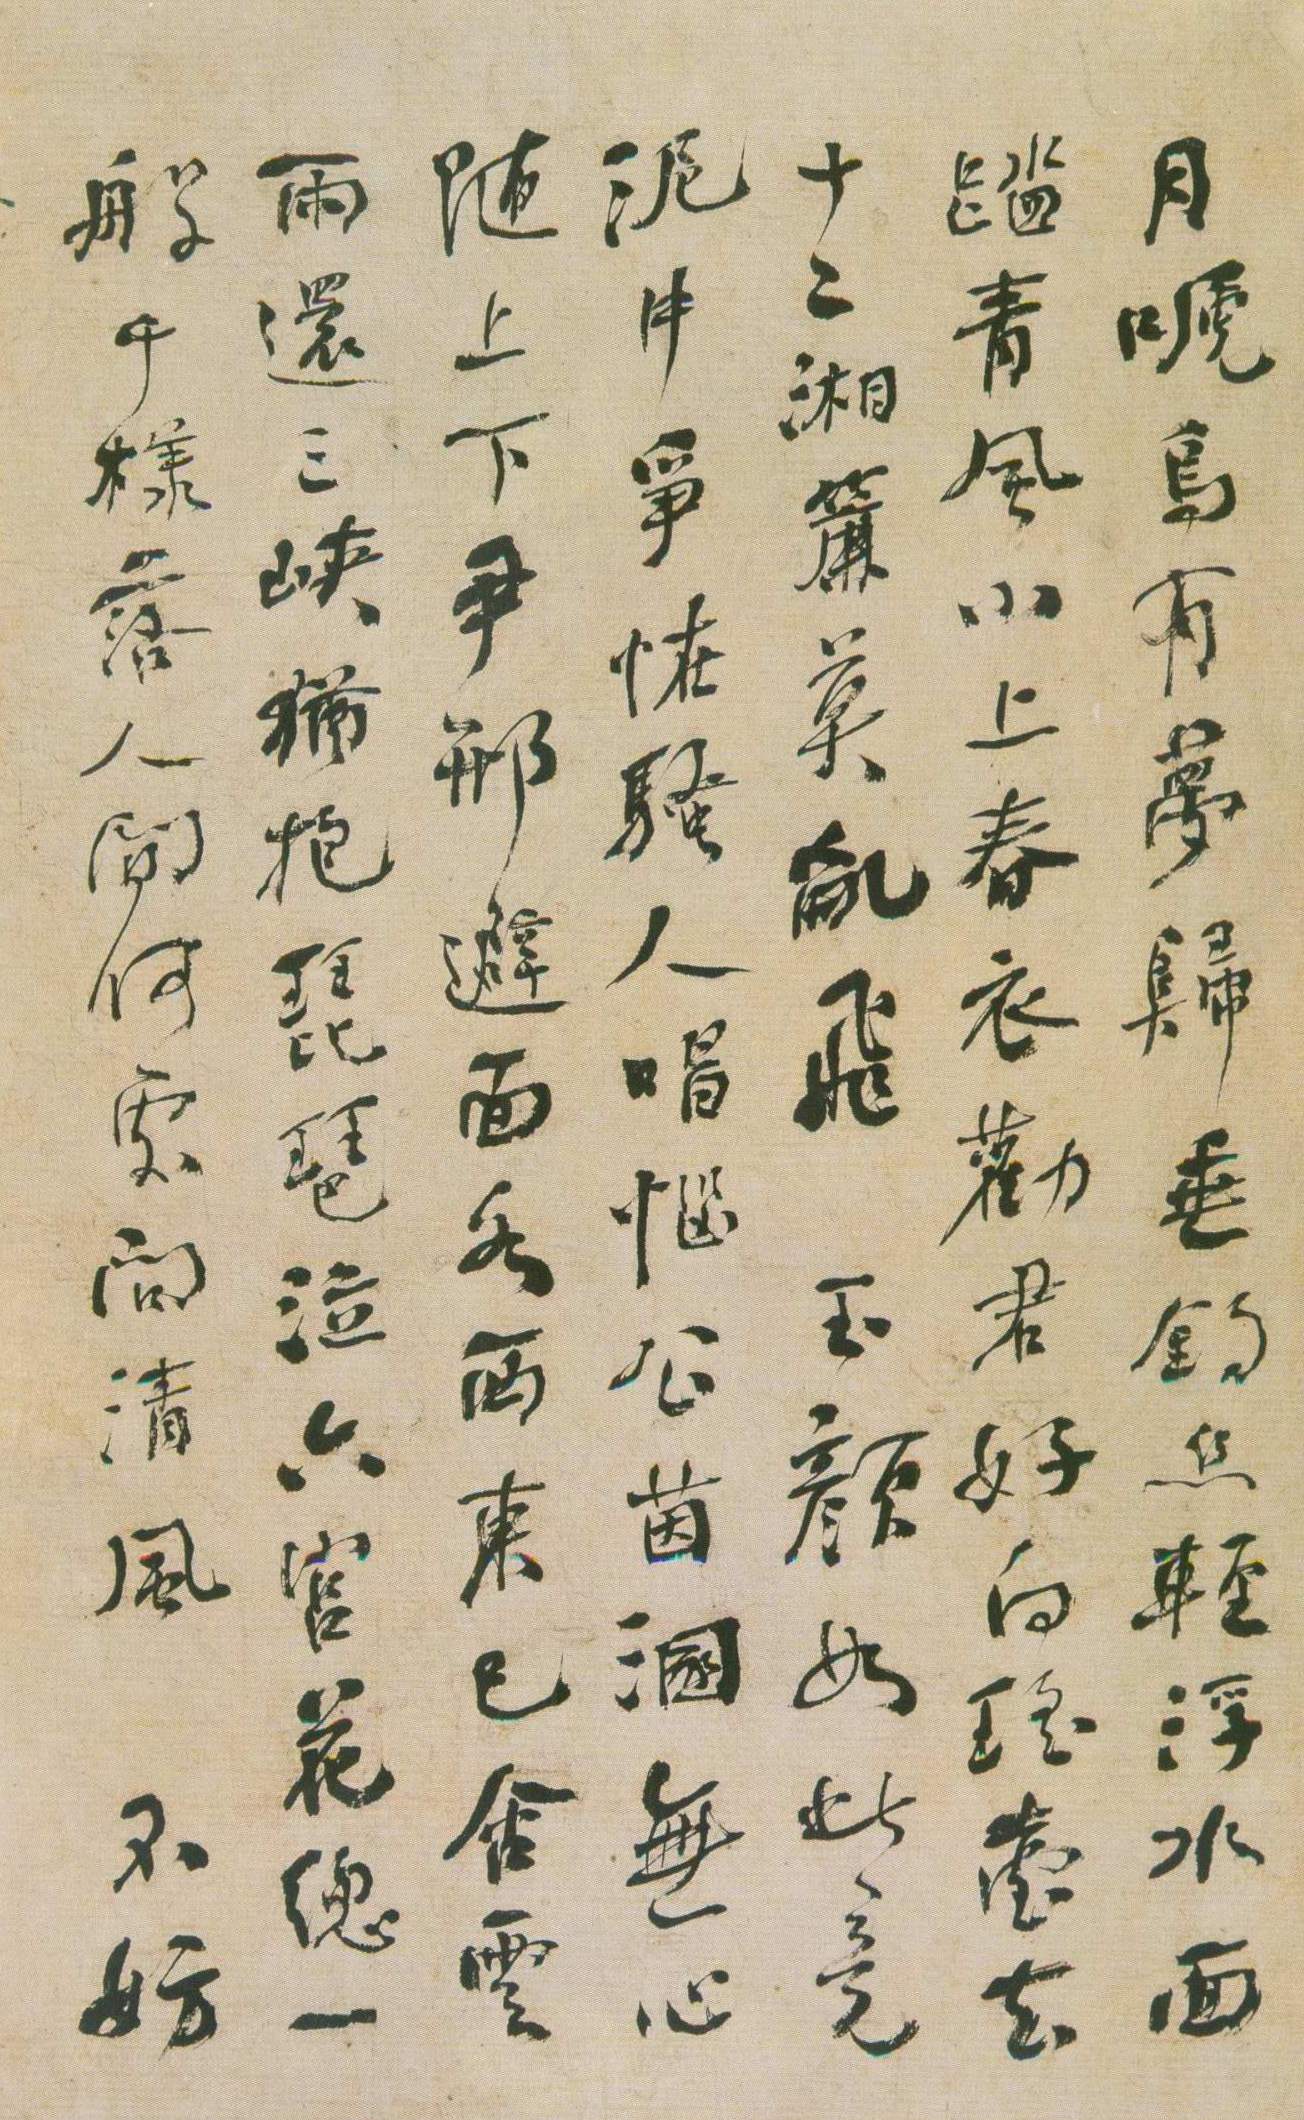 月嗁烏有夢歸垂鉤点輕浮水面
蹋青風小上春衣勸君好向瑤臺去
十二湘簾莫亂飛 玉顏如此竟
泥中爭怪騷人唱惱公茵溷無心
隨上下尹邢避面各西東已含雲
雨還三峽猶抱琵琶泣六宮花總一
般千樣落人間何處問清風 不妨